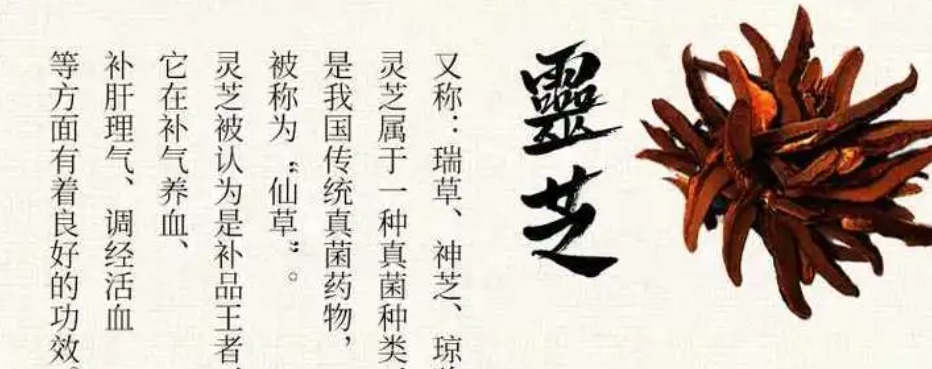 靈芝
又称：瑞草、神芝、琼
灵芝属于一种真菌种类
是我国传统真菌药物，
被称为“仙草”。
灵芝被认为是补品王者，
它在补气养血、
补肝理气、调经活血
等方面有着良好的功效。